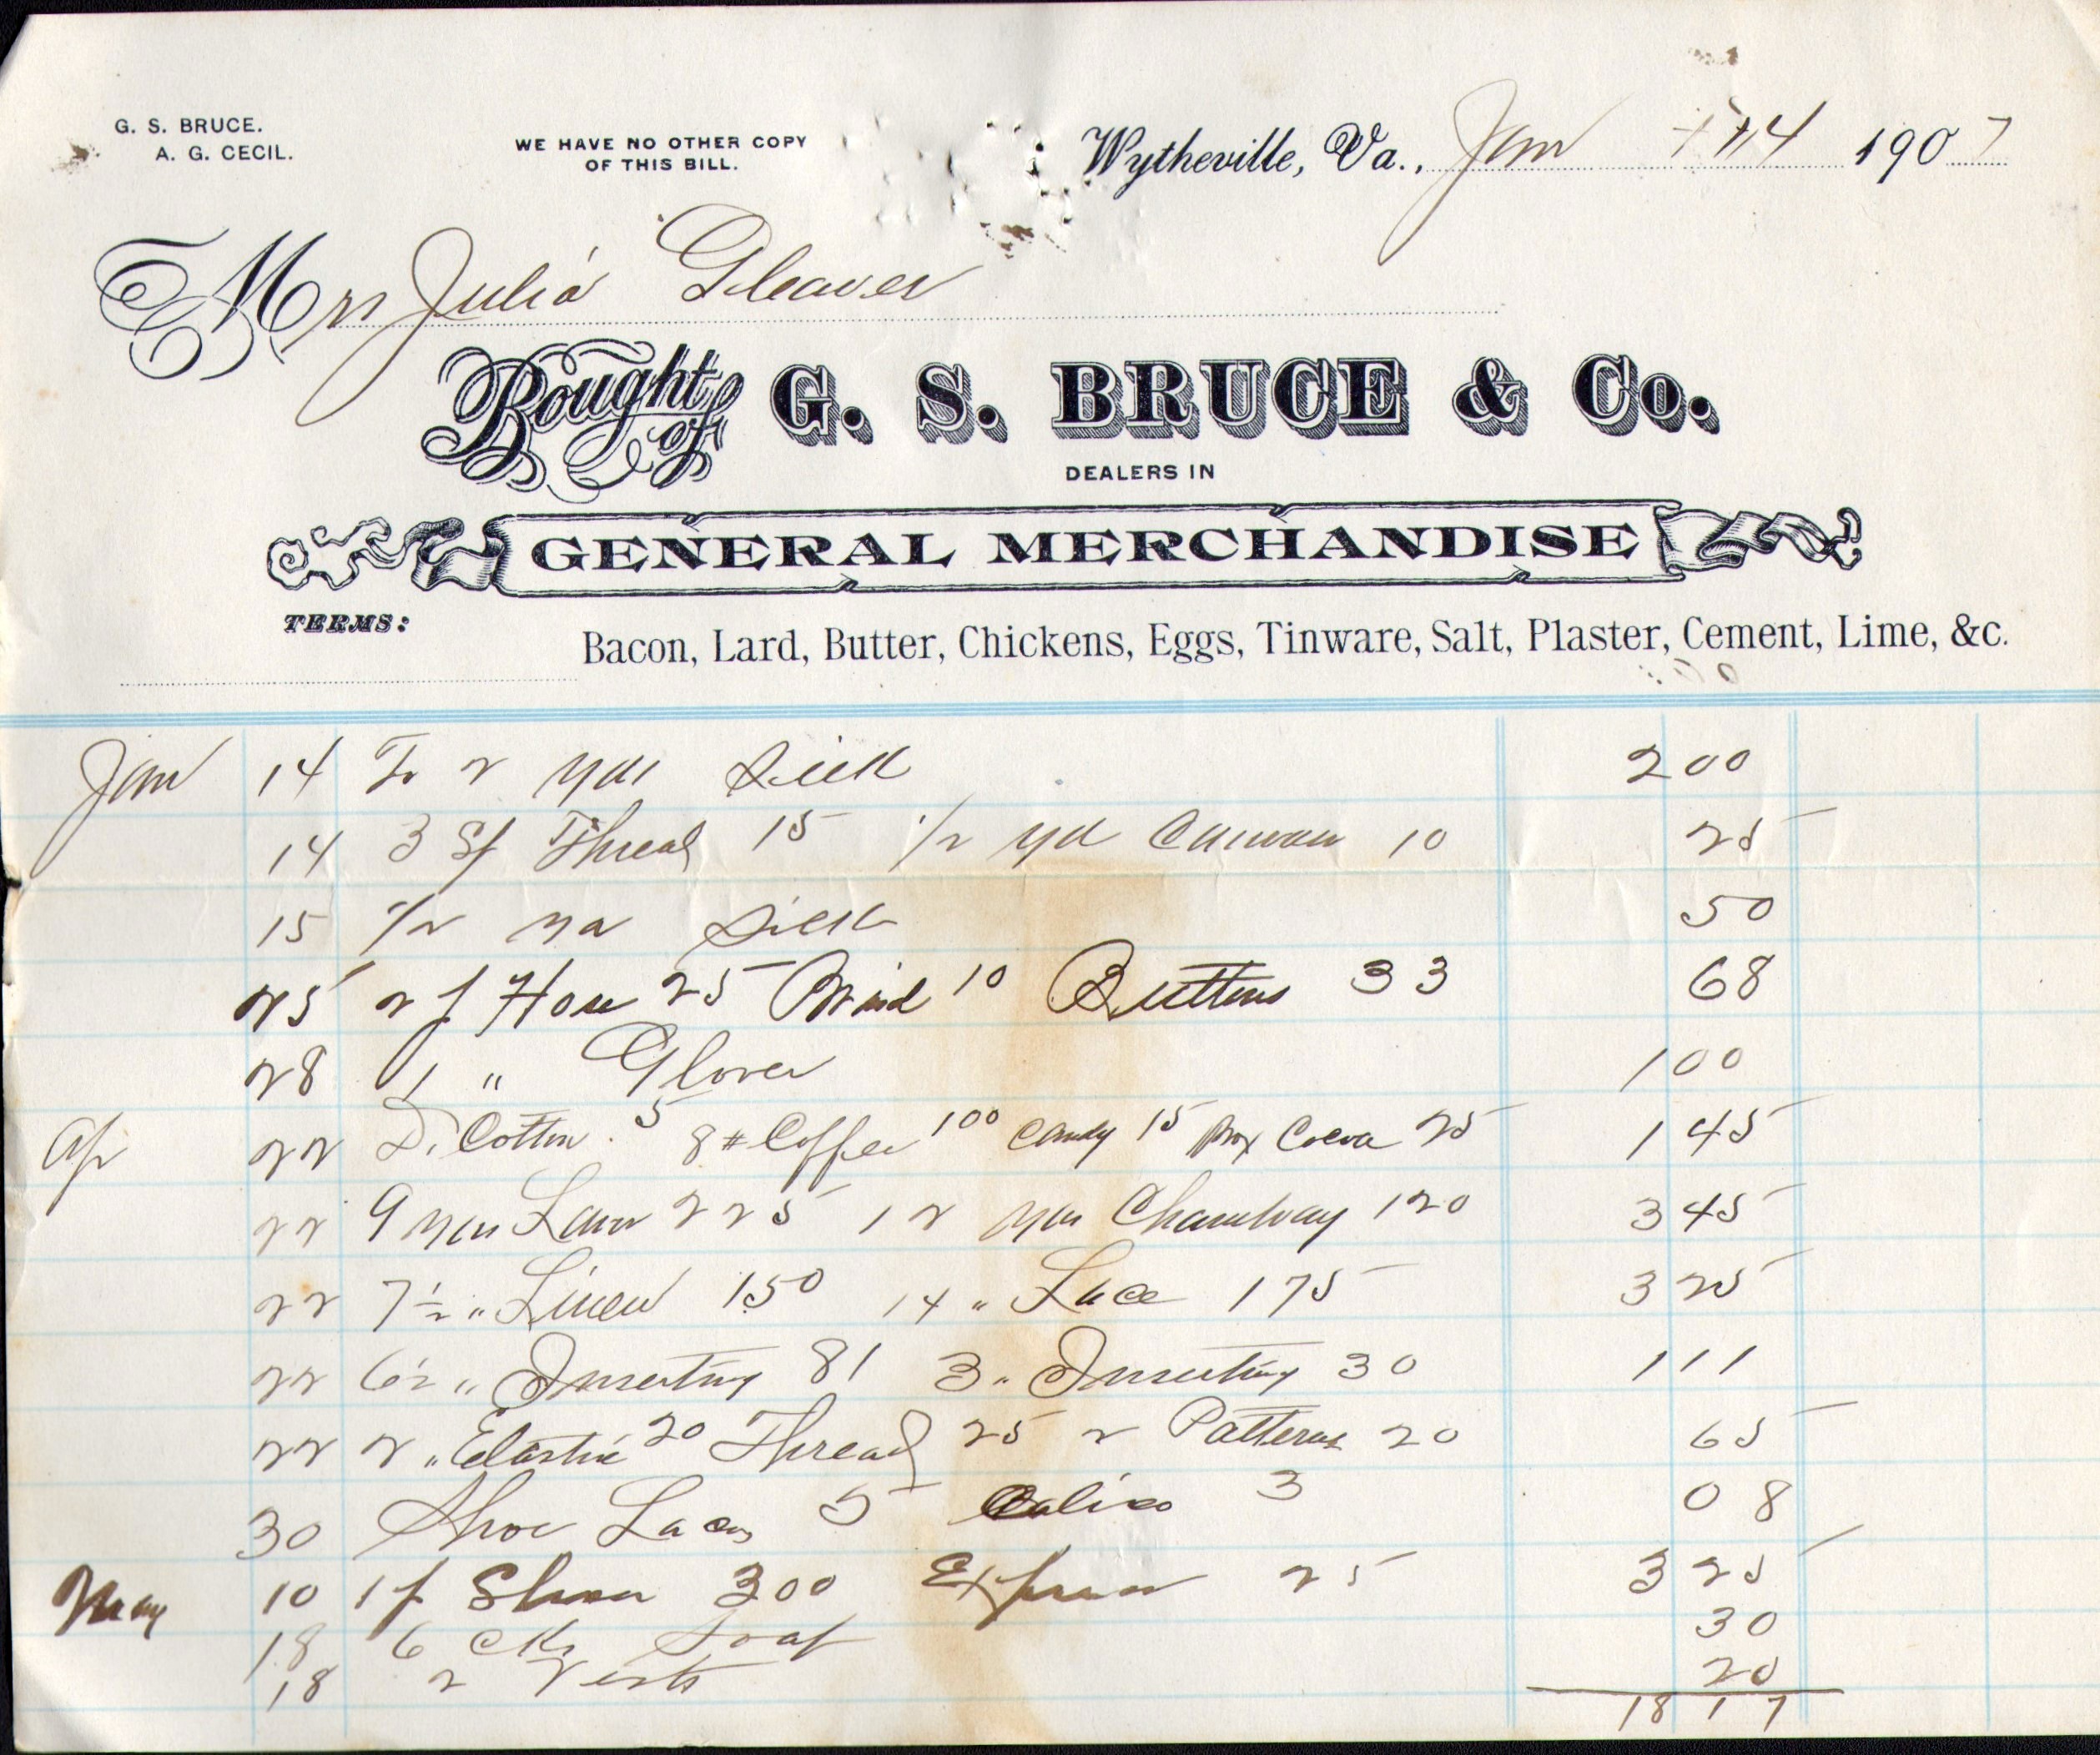 G. S. BRUCE.
A. G. CECIL.
WE HAVE NO OTHER COPY
OF THIS BILL.
Wytheville, Va., Jan 14 1907
Mrs Julia Gleaves
Bought of G. S. BRUCE & Co.
DEALERS IN
GENERAL MERCHANDISE
TERMS:
Bacon, Lard, Butter, Chickens, Eggs, Tinware, Salt, Plaster, Cement, Lime, &c.
Jan 14 To 2 yds Silk 2 00
14 3 Sp Thread 15 1/2 yd Canvas 10 25
15 1/2 yd Silk 50
25 2 p Hose 25 Braid 10 Buttons 33 68
28 1 " Gloves 1 00
Ap 22 D. Cotton 5 8 # Coffee 100 Candy 15 Box Cocoa 25 1 45
22 9 yds Lawn 225 12 yds Chambray 120 3 45
22 7 1/2 " Linen 150 14 " Lace 175 3 25
22 6 1/2 " Inserting 81 3 " Inserting 30 1 11
22 2 " Elastic 20 Thread 25 2 Patterns 20 65
30 Shoe Laces 5 Calico 3 08
May 10 1 p Shoes 300 Express 25 3 25
18 6 cks Soap 30
18 2 Vests 20
18 17